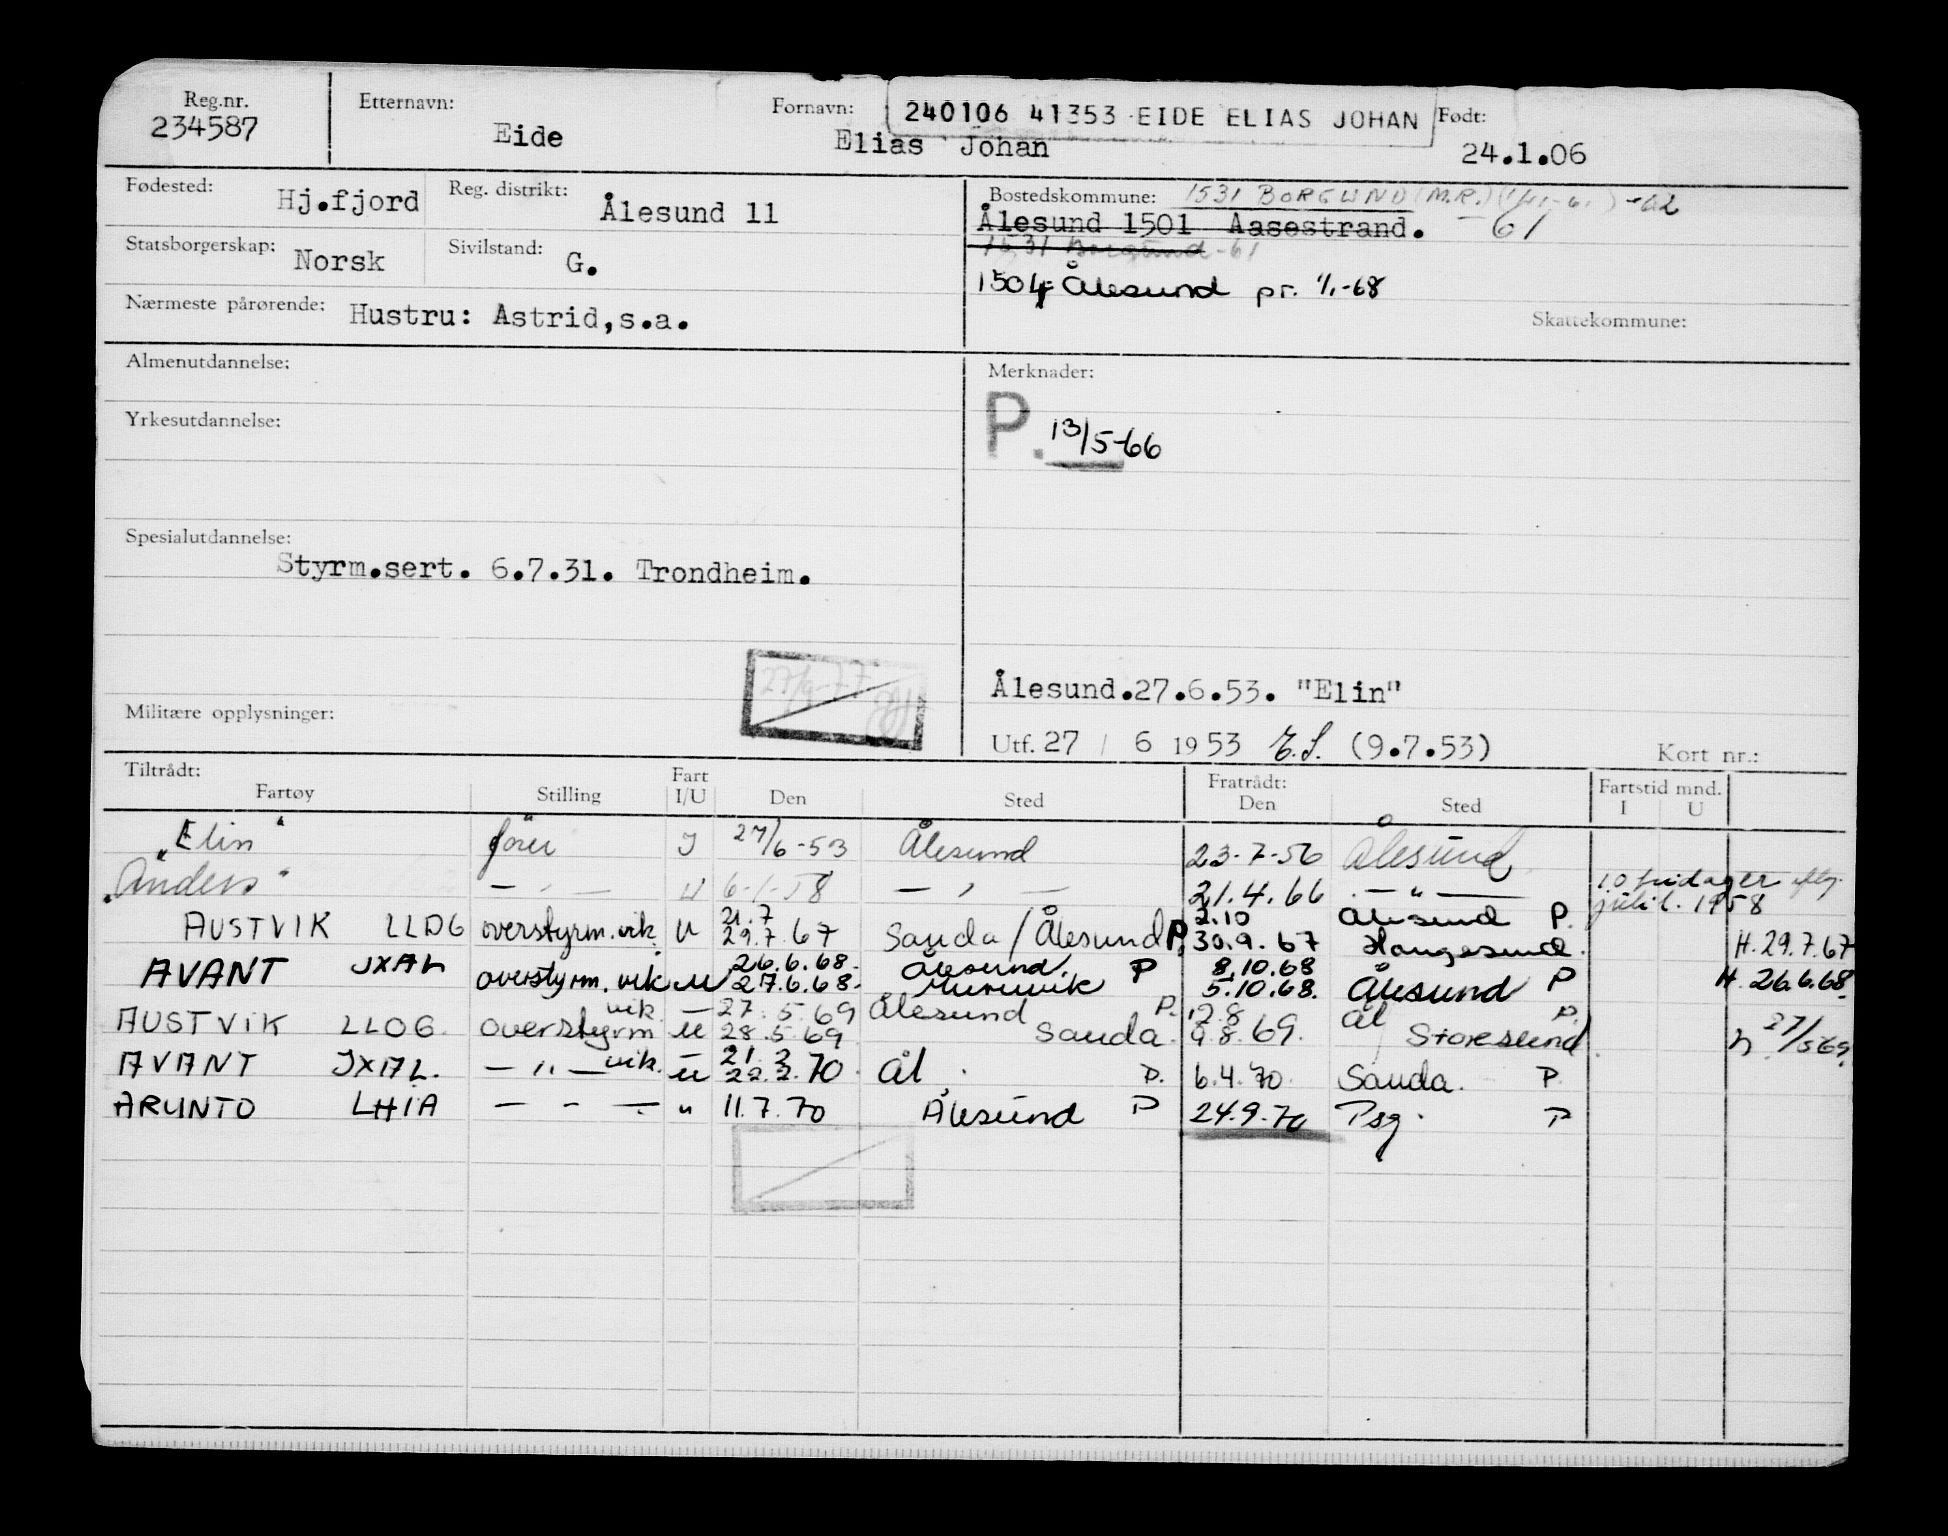 Reg.nr. Etternavn: Fornavn: 240106 41353 EIDE ELIAS JOHAN Født:
234587 Eide Elias Johan 24.1.06
Fødested: Hj.fjord Reg. distrikt: Ålesund 11
Statsborgerskap: Norsk Sivilstand: G.
Nærmeste pårørende: Hustru: Astrid,s.a.
Bostedskommune: 1531 BORGUND (M.R.) -62
Ålesund 1501 Aasestrand. 61
1531 Borgund -61
1504 Ålesund pr. 1/1-68
Skattekommune:
Almenutdannelse:
Yrkesutdannelse:
Spesialutdannelse:
Styrm.sert. 6.7.31. Trondheim.
27/9-77
Militære opplysninger:
Merknader:
P. 13/5-66
Ålesund.27.6.53. "Elin"
Utf. 27 / 6 1953 E.S. (9.7.53) Kort nr.:
Tiltrådt: Fart Fratrådt: Fartstid mnd.
Fartøy Stilling I/U Den Sted Den Sted I U
"Elin" fører I 27/6-53 Ålesund 23-7-56 Ålesund
"Anders" — " — 6-1-58 — " — 21.4.66 — " — 10 fridager
juli 1958
AUSTVIK LLOG overstyrm. vik. U 21.7 29.7.67 Sauda / Ålesund P. 2.10 30.9.67 Ålesund P. Haugesund. H. 29.7.67
AVANT JXAL overstyrm. vik U 26.6.68. 27.6.68. Ålesund. P 8.10.68 5.10.68. Ålesund P H. 26.6.68.
AUSTVIK LLOG. overstyrm vik. U 27.5.69 28.5.69 Ålesund P. Sauda. 12.8 9.8.69. Ål P. Storesund. 27/5 69.
AVANT JXAL. — " — vik. U 21.2 22.2.70 Ål. P. 6.4.70. Sauda. P.
ARUNTO LHIA — " — " 11.7.70 Ålesund P 24.9.70 Psg. P